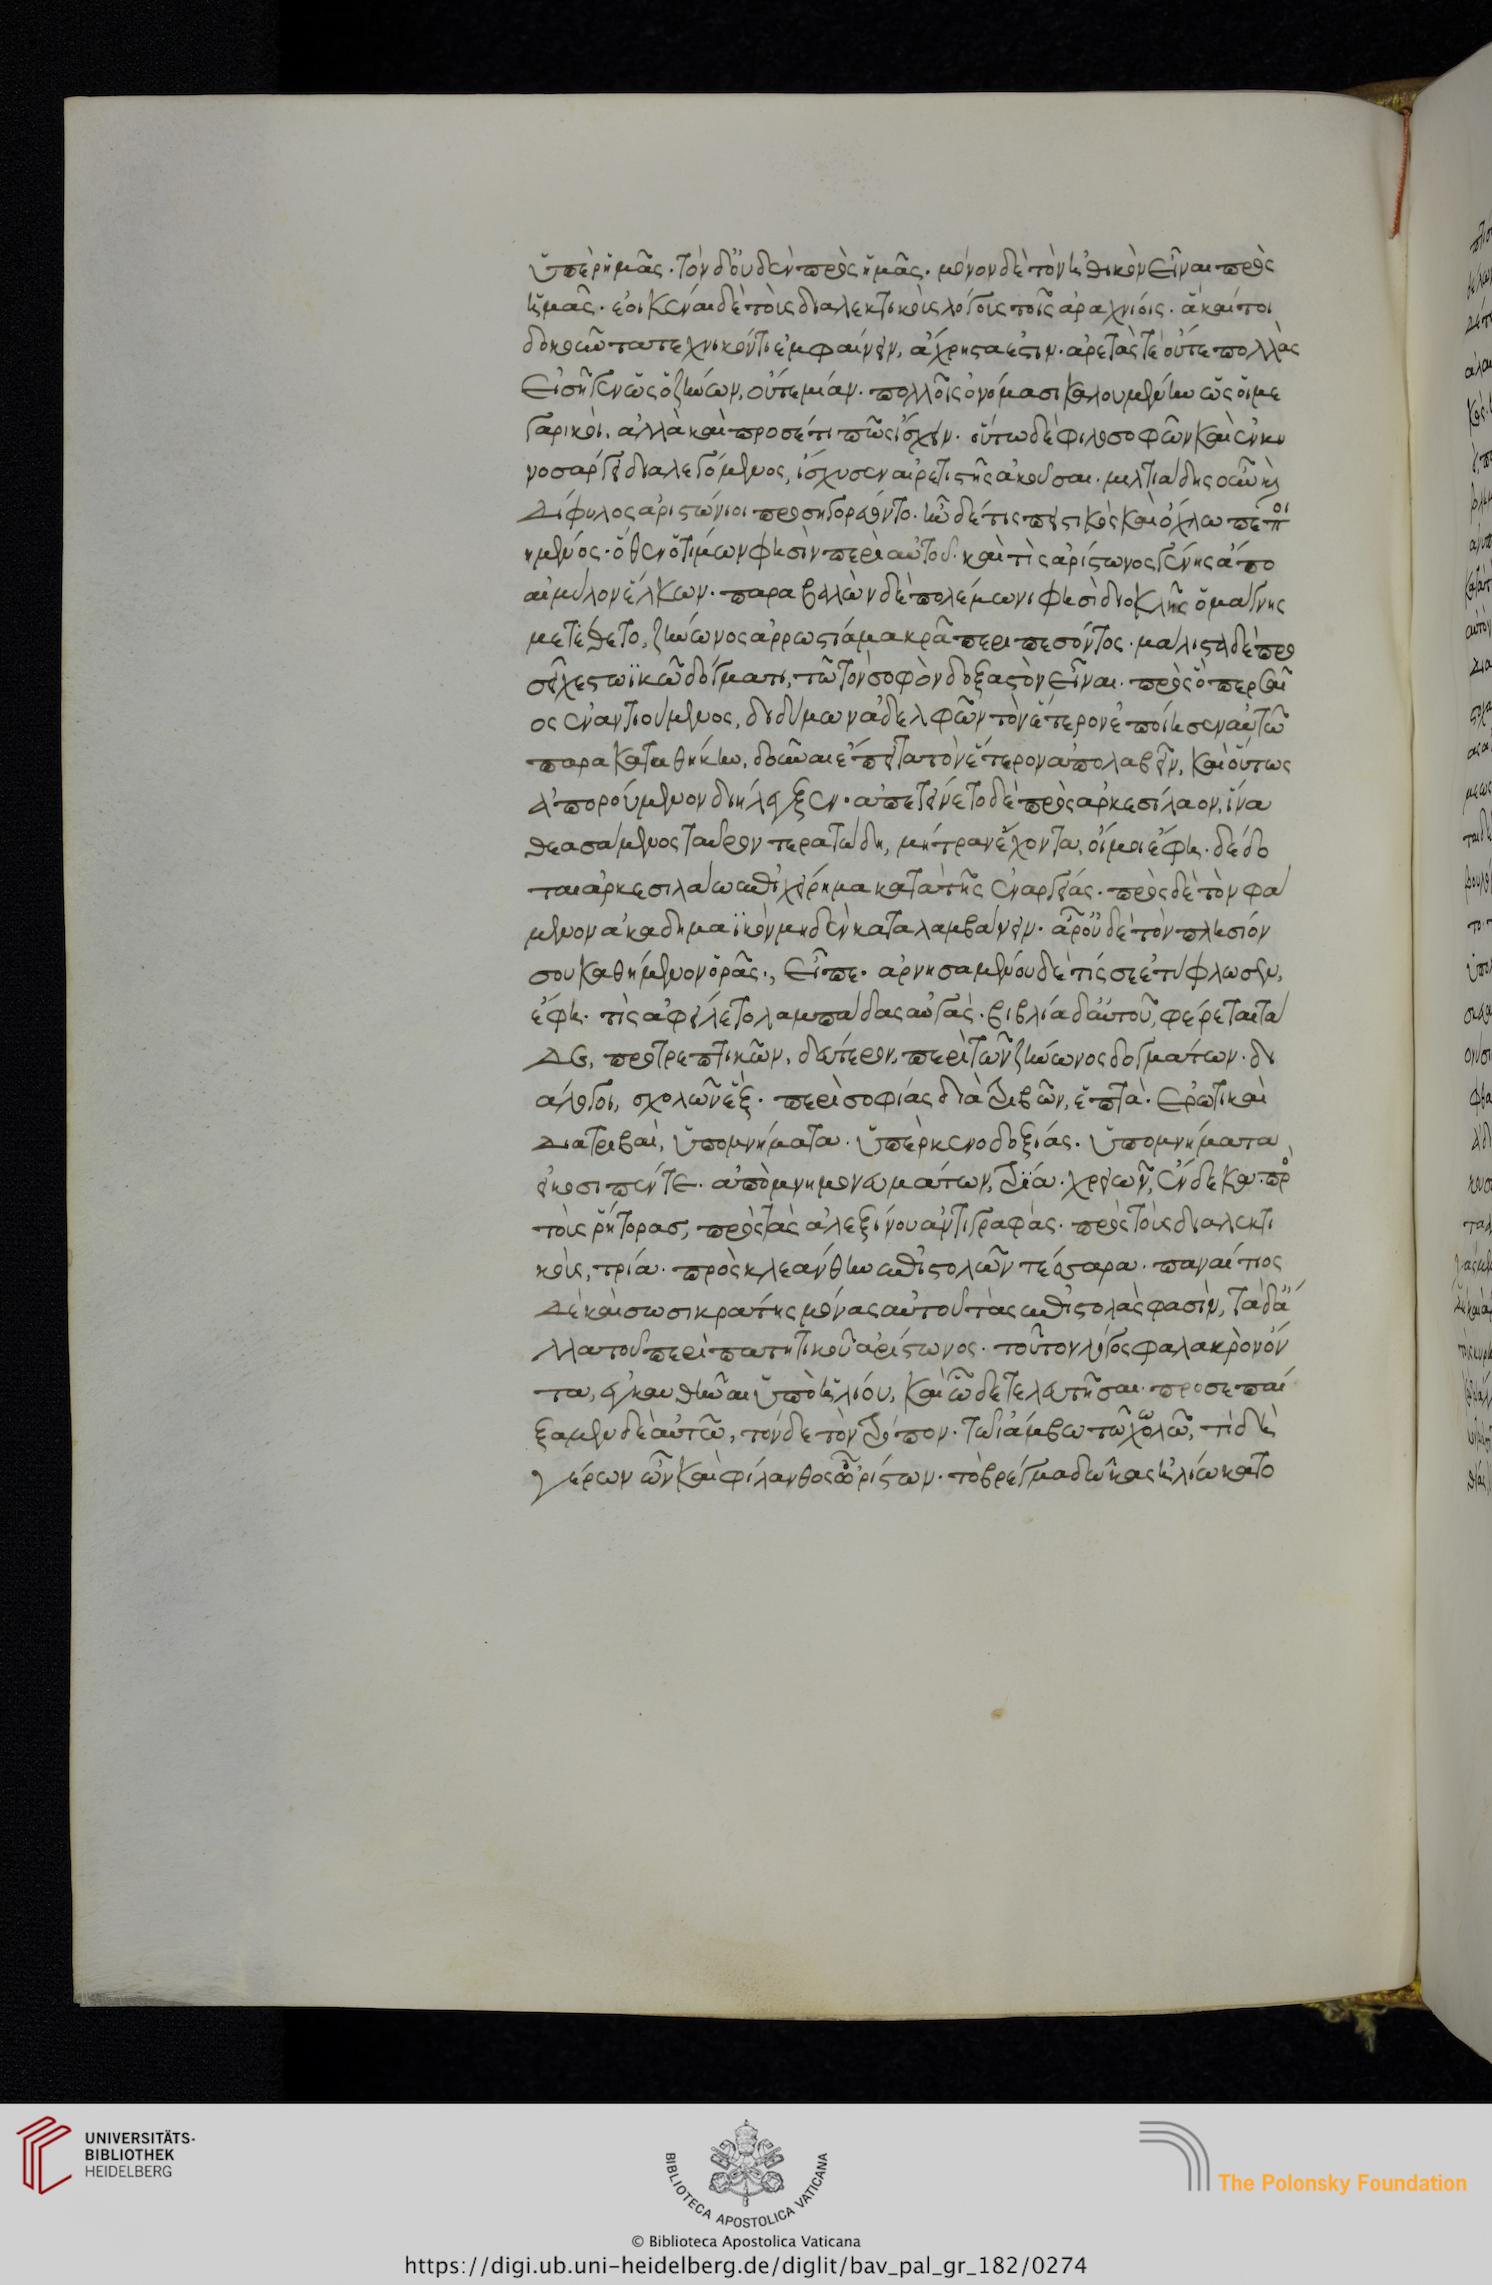 ὑπὲρ ἡμᾶς· τὸν δ' οὐδὲν πρὸς ἡμᾶς· μόνον δὲ τὸν ἠθικὸν εἶναι πρὸς
ἡμᾶς· ἐοικέναι δὲ τοὺς διαλεκτικοὺς λόγους τοῖς ἀραχνίοις· ἃ καίτοι
δοκοῦντα τεχνικόν τι ἐμφαίνειν, ἄχρηστά ἐστιν. ἀρετάς τε οὔτε πολλὰς
εἰσῆγεν ὡς ὁ ζήνων, οὔτε μίαν· πολλοῖς ὀνόμασι καλουμένην ὡς οἱ με
γαρικοί· ἀλλὰ καὶ προσέτι πῶς ἴσχειν· οὕτω δὲ φιλοσοφῶν καὶ ἐν κυ
νοσάργει διαλεγόμενος, ἴσχυσεν αἱρετιστὴς ἀκοῦσαι. μιλτιάδης οὖν καὶ
δίφυλος ἀριστώνιοι προσηγορεύοντο. ἦν δέ τις πειστικὸς καὶ ὄχλω πεποι
ημένος· ὅθεν ὁ τίμων φησὶν περὶ αὐτοῦ. καί τις ἀρίστωνος γένης ἀπο
αἱμύλον ἕλκων· παραβαλὼν δὲ πολέμωνι φησὶ διοκλῆς ὁ μάγνης
μετέθετο, ζήνωνος ἀρρωστία μακρᾶ περιπεσόντος. μάλιστα δὲ προ
σεῖχε στωϊκῶ δόγματι, τῶ τὸν σοφὸν δοξαστὸν εἶναι. πρὸς ὅπερ σαι
ος ἐναντιούμενος, διδύμων ἀδελφῶν τὸν ἕτερον ἐποίησεν αὐτῶ
παρακαταθήκην, δοῦναι ἔπειτα τὸν ἕτερον ἀπολαβεῖν, καὶ οὕτως
ἀπορούμενον διήλεγξεν. ἀπετείνετο δὲ πρὸς ἀρκεσίλαον, ἵνα
θεασάμενος ταῦρον τερατώδη, μήτραν ἔχοντα, οἴμοι ἔφη. δέδο
ται ἀρκεσιλάω ἐπιχείρημα κατὰ τῆς ἐναργείας. πρὸς δὲ τὸν φά
μενον ἀκαδημαϊκὸν μηδὲν καταλαμβάνειν· ἆρ' οὐδὲ τὸν πλησίον
σου καθήμενον ὁρᾶς, εἶπε. ἀρνησαμένου δὲ τίς σε ἐτύφλωσεν,
ἔφη. τίς ἀφείλετο λαμπάδας αὐγάς. βιβλία δ' αὐτοῦ, φέρεται τά
δε, προτρεπτικῶν, δεύτερον, περὶ τῶν ζήνωνος δογμάτων. δι
άλογοι, σχολῶν ἕξ· περὶ σοφίας διατριβῶν, ἑπτά. ἐρωτικαὶ
διατριβαί, ὑπομνήματα. ὑπὲρ κενοδοξίας. ὑπομνήματα
εἴκοσι πέντε. ἀπομνημονευμάτων, τρία. χρειῶν, ἕνδεκα. πρὸς
τοὺς ῥήτορας, πρὸς τὰς ἀλεξίνου ἀντιγραφάς. πρὸς τοὺς διαλεκτι
κούς, τρία. πρὸς κλεάνθην ἐπιστολῶν τέσσαρα. παναίτιος
δὲ καὶ σωσικράτης μόνας αὐτοῦ τὰς ἐπιστολὰς φασίν, τὰ δ' ἄ
λλα τοῦ περὶπατητικοῦ ἀρίστωνος. τοῦτον λόγος φαλακρὸν ὄν
τα, ἐγκαυθῆναι ὑπὸ ἡλίου, καὶ ὧδε τελευτῆσαι. προσεπαί
ξαμεν δὲ αὐτῶ, τόνδε τὸν τρόπον. τῶ ἰάμβω τῶ χωλῶ, τί δὴ
γέρων ὢν καὶ φίλανθος ὦ 'ρίστων. τὸ βρέγμα δῶκας ἡλίω κατο
UNIVERSITÄTS-
BIBLIOTHEK
HEIDELBERG
BIBLIOTECA APOSTOLICA VATICANA
The Polonsky Foundation
© Biblioteca Apostolica Vaticana
https://digi.ub.uni-heidelberg.de/diglit/bav_pal_gr_182/0274